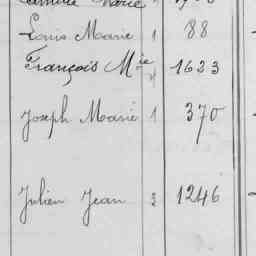 Louis Marie 1 88
François Mie 1 1623
Joseph Marie 1 370
Julien Jean 2 1246